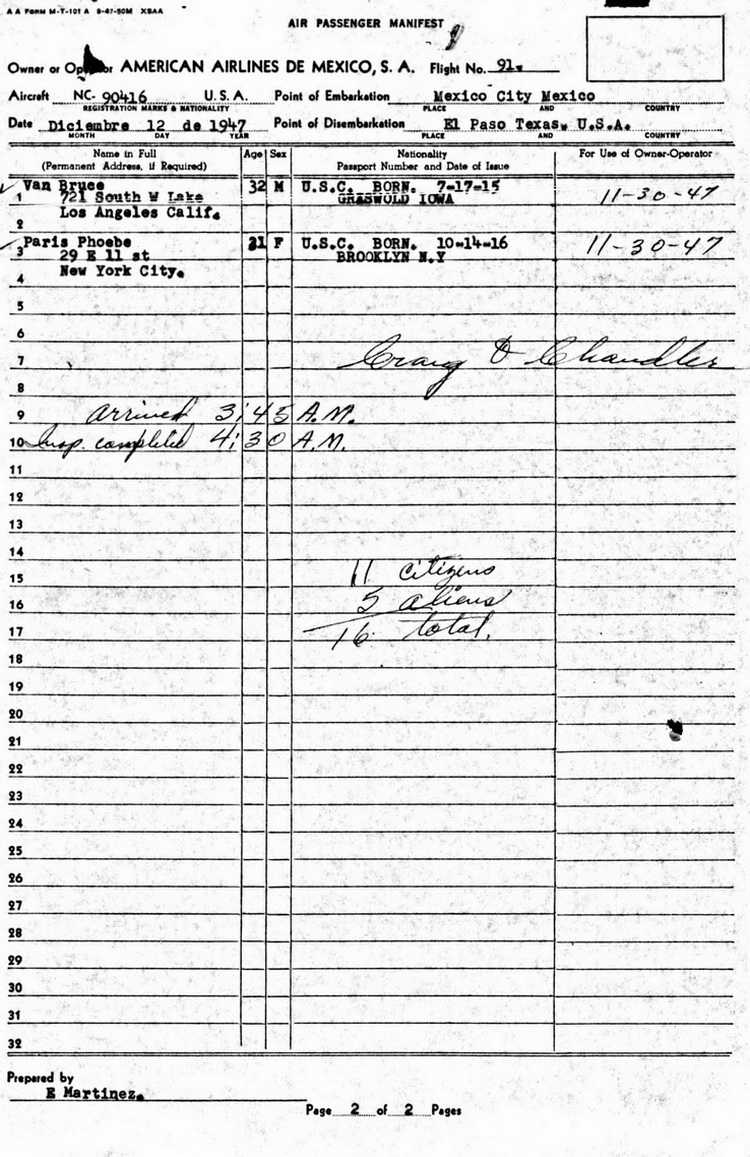 A A Form M-T-101 A 8-47-50M XSAA
AIR PASSENGER MANIFEST
Owner or Operator AMERICAN AIRLINES DE MEXICO, S. A. Flight No. 91.
Aircraft NC- 90416 U. S. A. Point of Embarkation Mexico City Mexico
REGISTRATION MARKS & NATIONALITY PLACE AND COUNTRY
Date Diciembre 12 de 1947 Point of Disembarkation El Paso Texas, U.S.A.
MONTH DAY YEAR PLACE AND COUNTRY
Name in Full Age Sex Nationality For Use of Owner-Operator
(Permanent Address, if Required) Passport Number and Date of Issue
Van Bruce 32 M U.S.C. BORN. 7-17-15
1 721 South W Lake GRISWOLD IOWA 11-30-47
Los Angeles Calif.
2
Paris Phoebe 31 F U.S.C. BORN. 10-14-16 11-30-47
3 29 E 11 st BROOKLYN N.Y
New York City.
4
5
6
7 Craig D Chandler
8
9 arrived 3:45 A.M.
10 Insp. completed 4:30 A.M.
11
12
13
14
15 11 citizens
16 5 aliens
17 16 total.
18
19
20
21
22
23
24
25
26
27
28
29
30
31
32
Prepared by
E Martinez.
Page 2 of 2 Pages